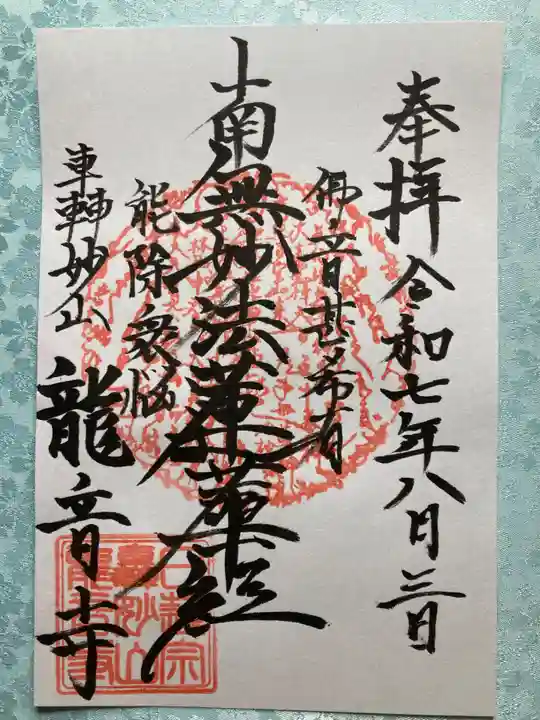 奉拝 令和七年八月三日
佛音甚希有
南無妙法蓮華経
能除衆悩
妙山 龍音寺